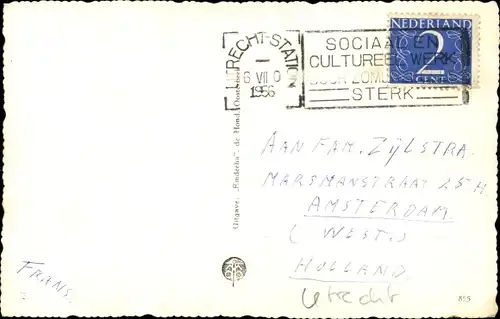 UTRECHT-STATION
6 VII 0
1956
SOCIAAL EN
CULTUREEL WERK
DOOR ZOMERZEGELS
STERK
NEDERLAND
2
CENT
Uitgave „Rinderha" de Hond,
AAN FAM. ZIJLSTRA.
MARSMANSTRAAT 25 H
AMSTERDAM.
(WEST.)
HOLLAND.
Utrecht
FRANS.
855